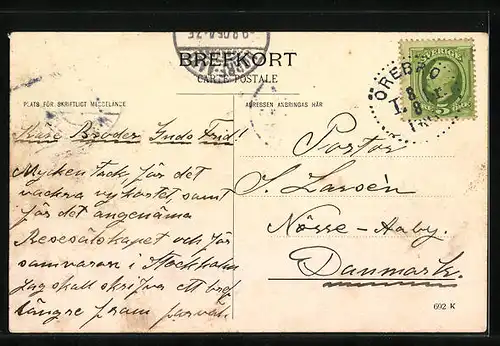 BREFKORT
CARTE POSTALE
PLATS FÖR SKRIFTLIGT MEDDELANDE
ADRESSEN ANBRINGAS HÄR
SVERIGE
ÖREBRO
Käre Broder Guds Frid!
Mycken tack för det
vackra vykortet samt
för det angenäma
Resesälskapet och för
samvaron i Stockholm
jag skall skrifva ett bref
längre fram
Pastor
J. Larsén
Nörre-Aaby.
Danmark.
692 K